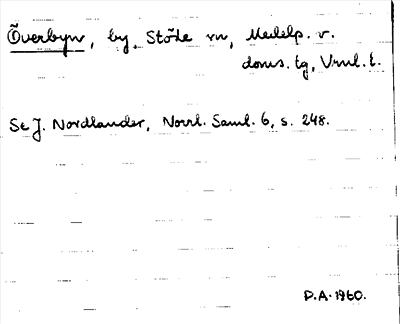 Överbyn, by, Stöde sn, Medelp. v.
doms. tg, Vrnl. l.
Se J. Nordlander, Norrl. Saml. 6, s. 248.
D.A. 1960.